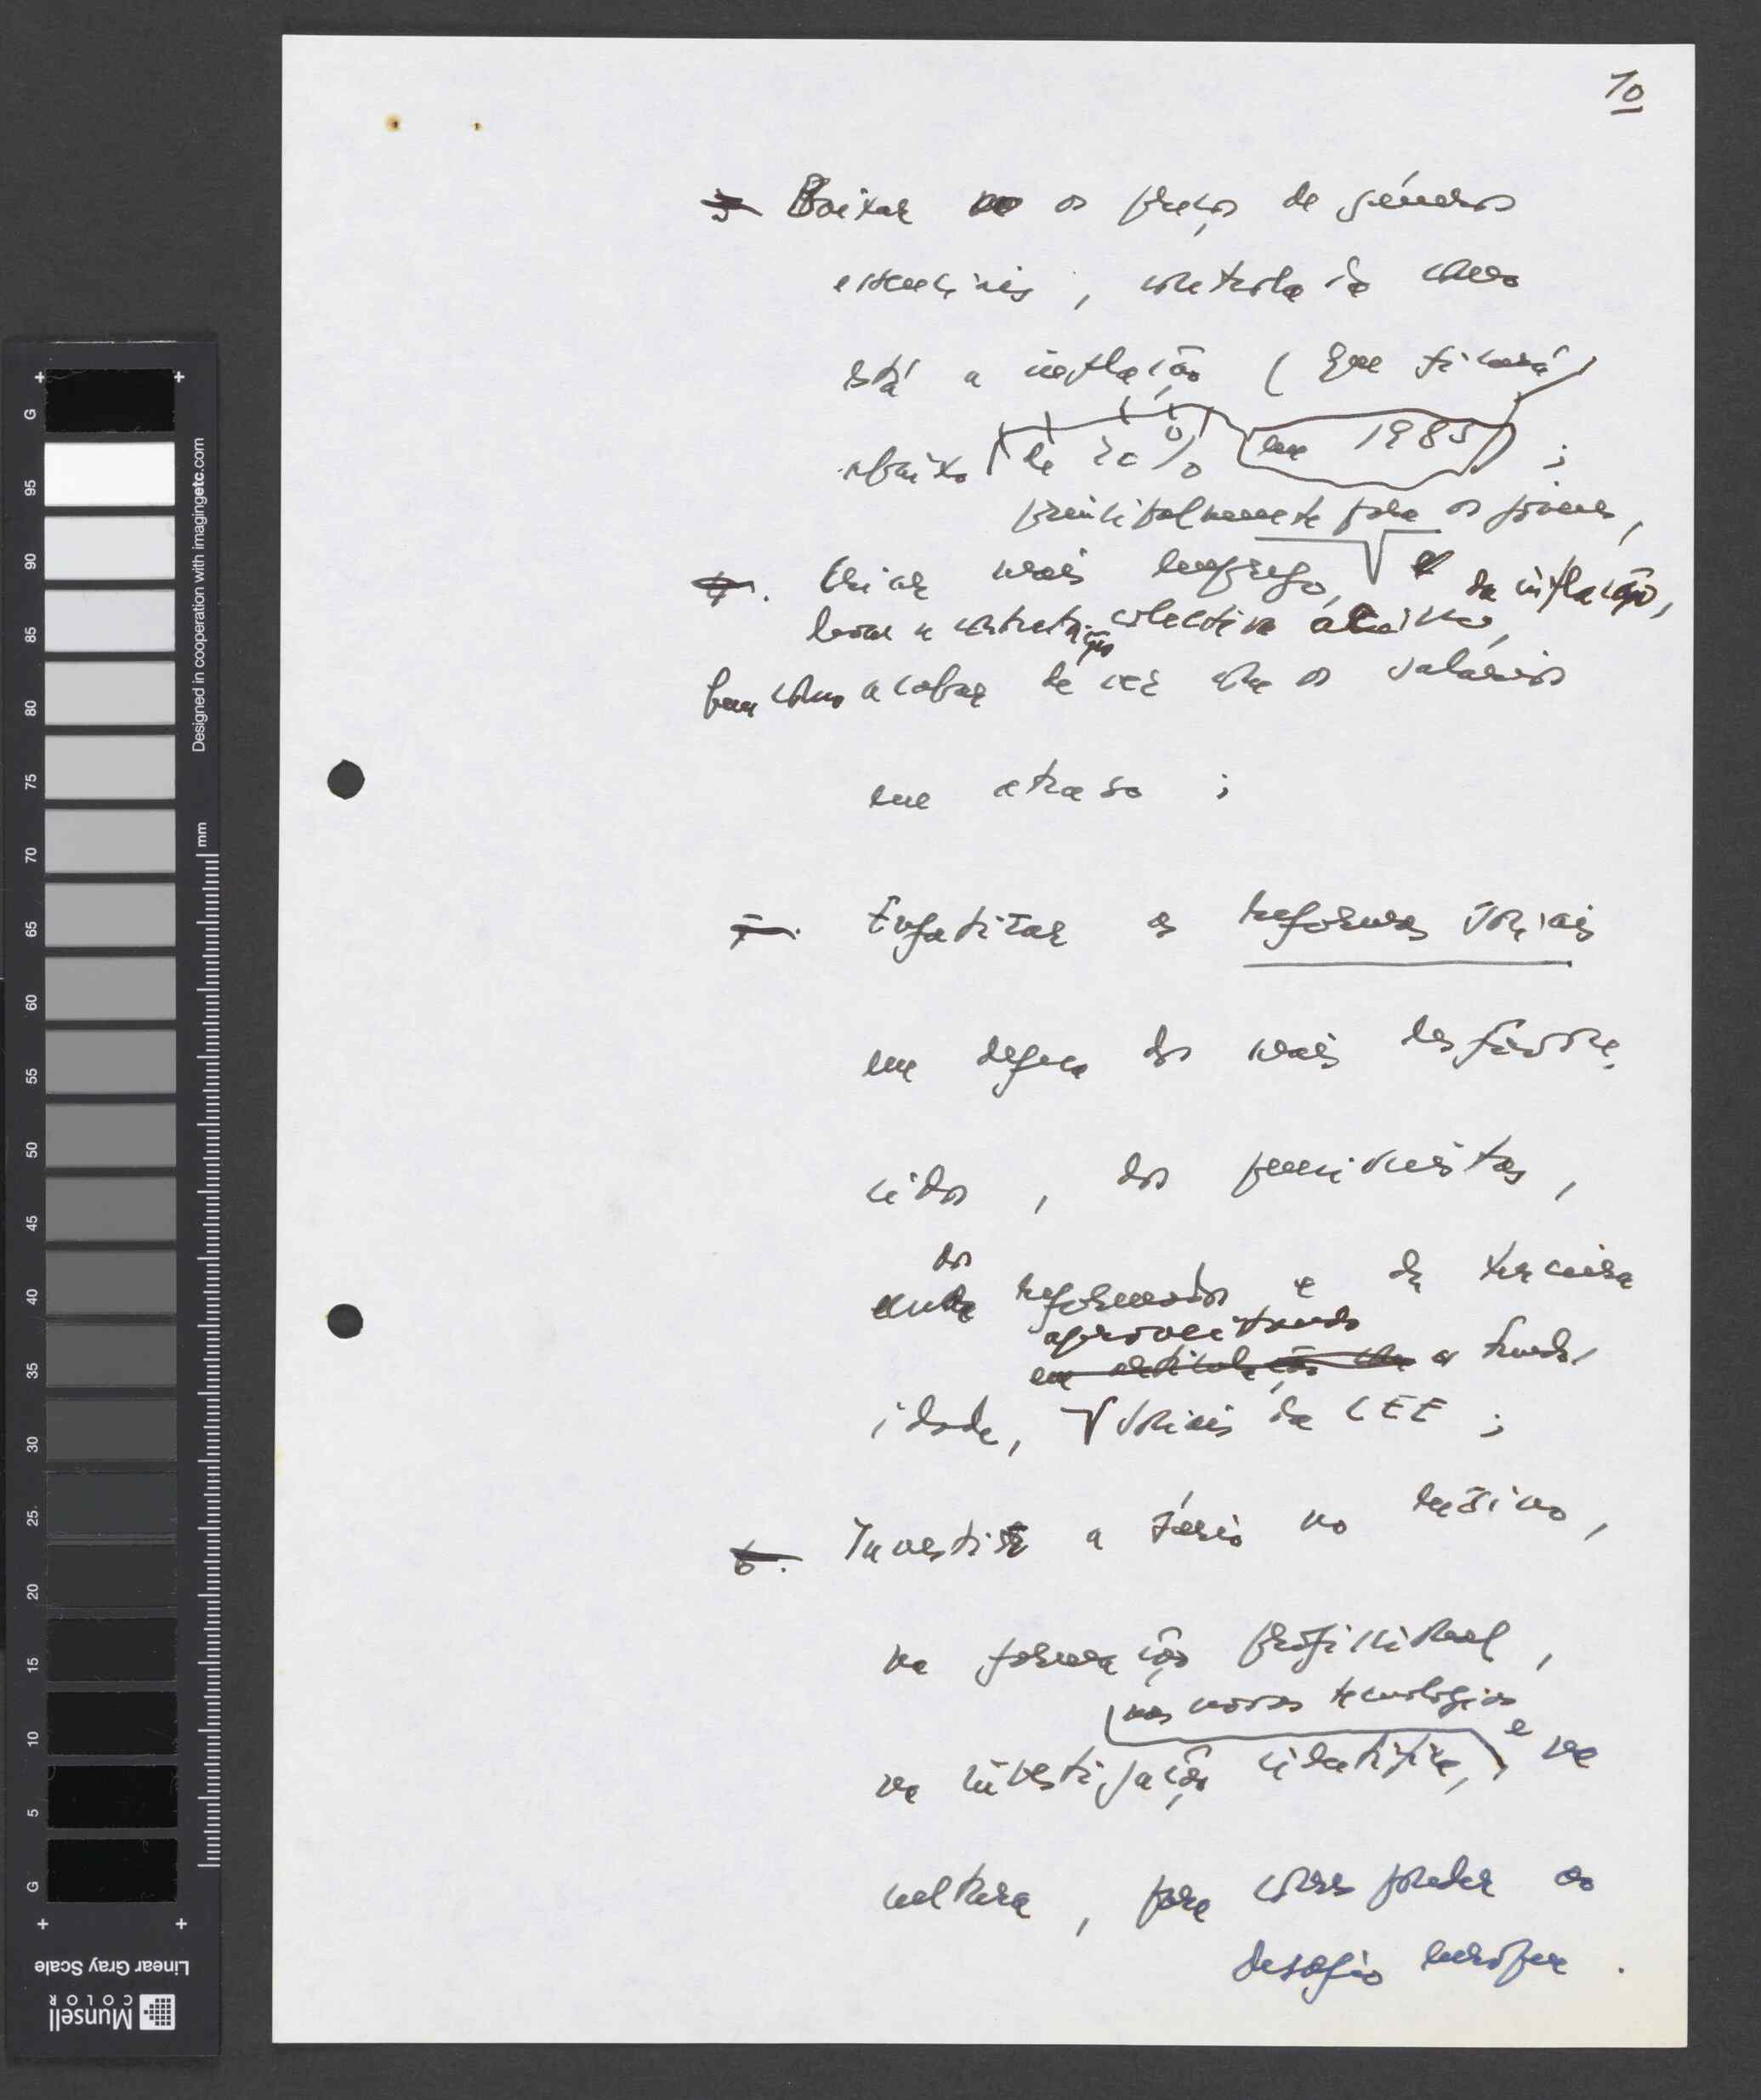 10
3. Baixar os preços de géneros
essenciais, controlada como
está a inflação (que ficará
abaixo de 20% em 1985);
principalmente para os jovens,
4. Criar mais emprego, da inflação,
levar a contratação colectiva acima
bem como acabar de vez com os salários
em atraso;
5. Enfatizar as reformas sociais
em defesa dos mais desfavore-
cidos, dos pensionistas,
dos
reformados e da terceira
aproveitando
em articulação com os fundos
idade, sociais da CEE;
6. Investir a sério no ensino,
na formação profissional,
nas novas tecnologias
na investigação científica, e na
cultura, para corresponder ao
desafio europeu.
G 5 10 15 20 25 30 35 40 45 50 55 60 65 70 75 80 85 90 95 G
mm
Designed in cooperation with imagingetc.com
Linear Gray Scale
Munsell
COLOR